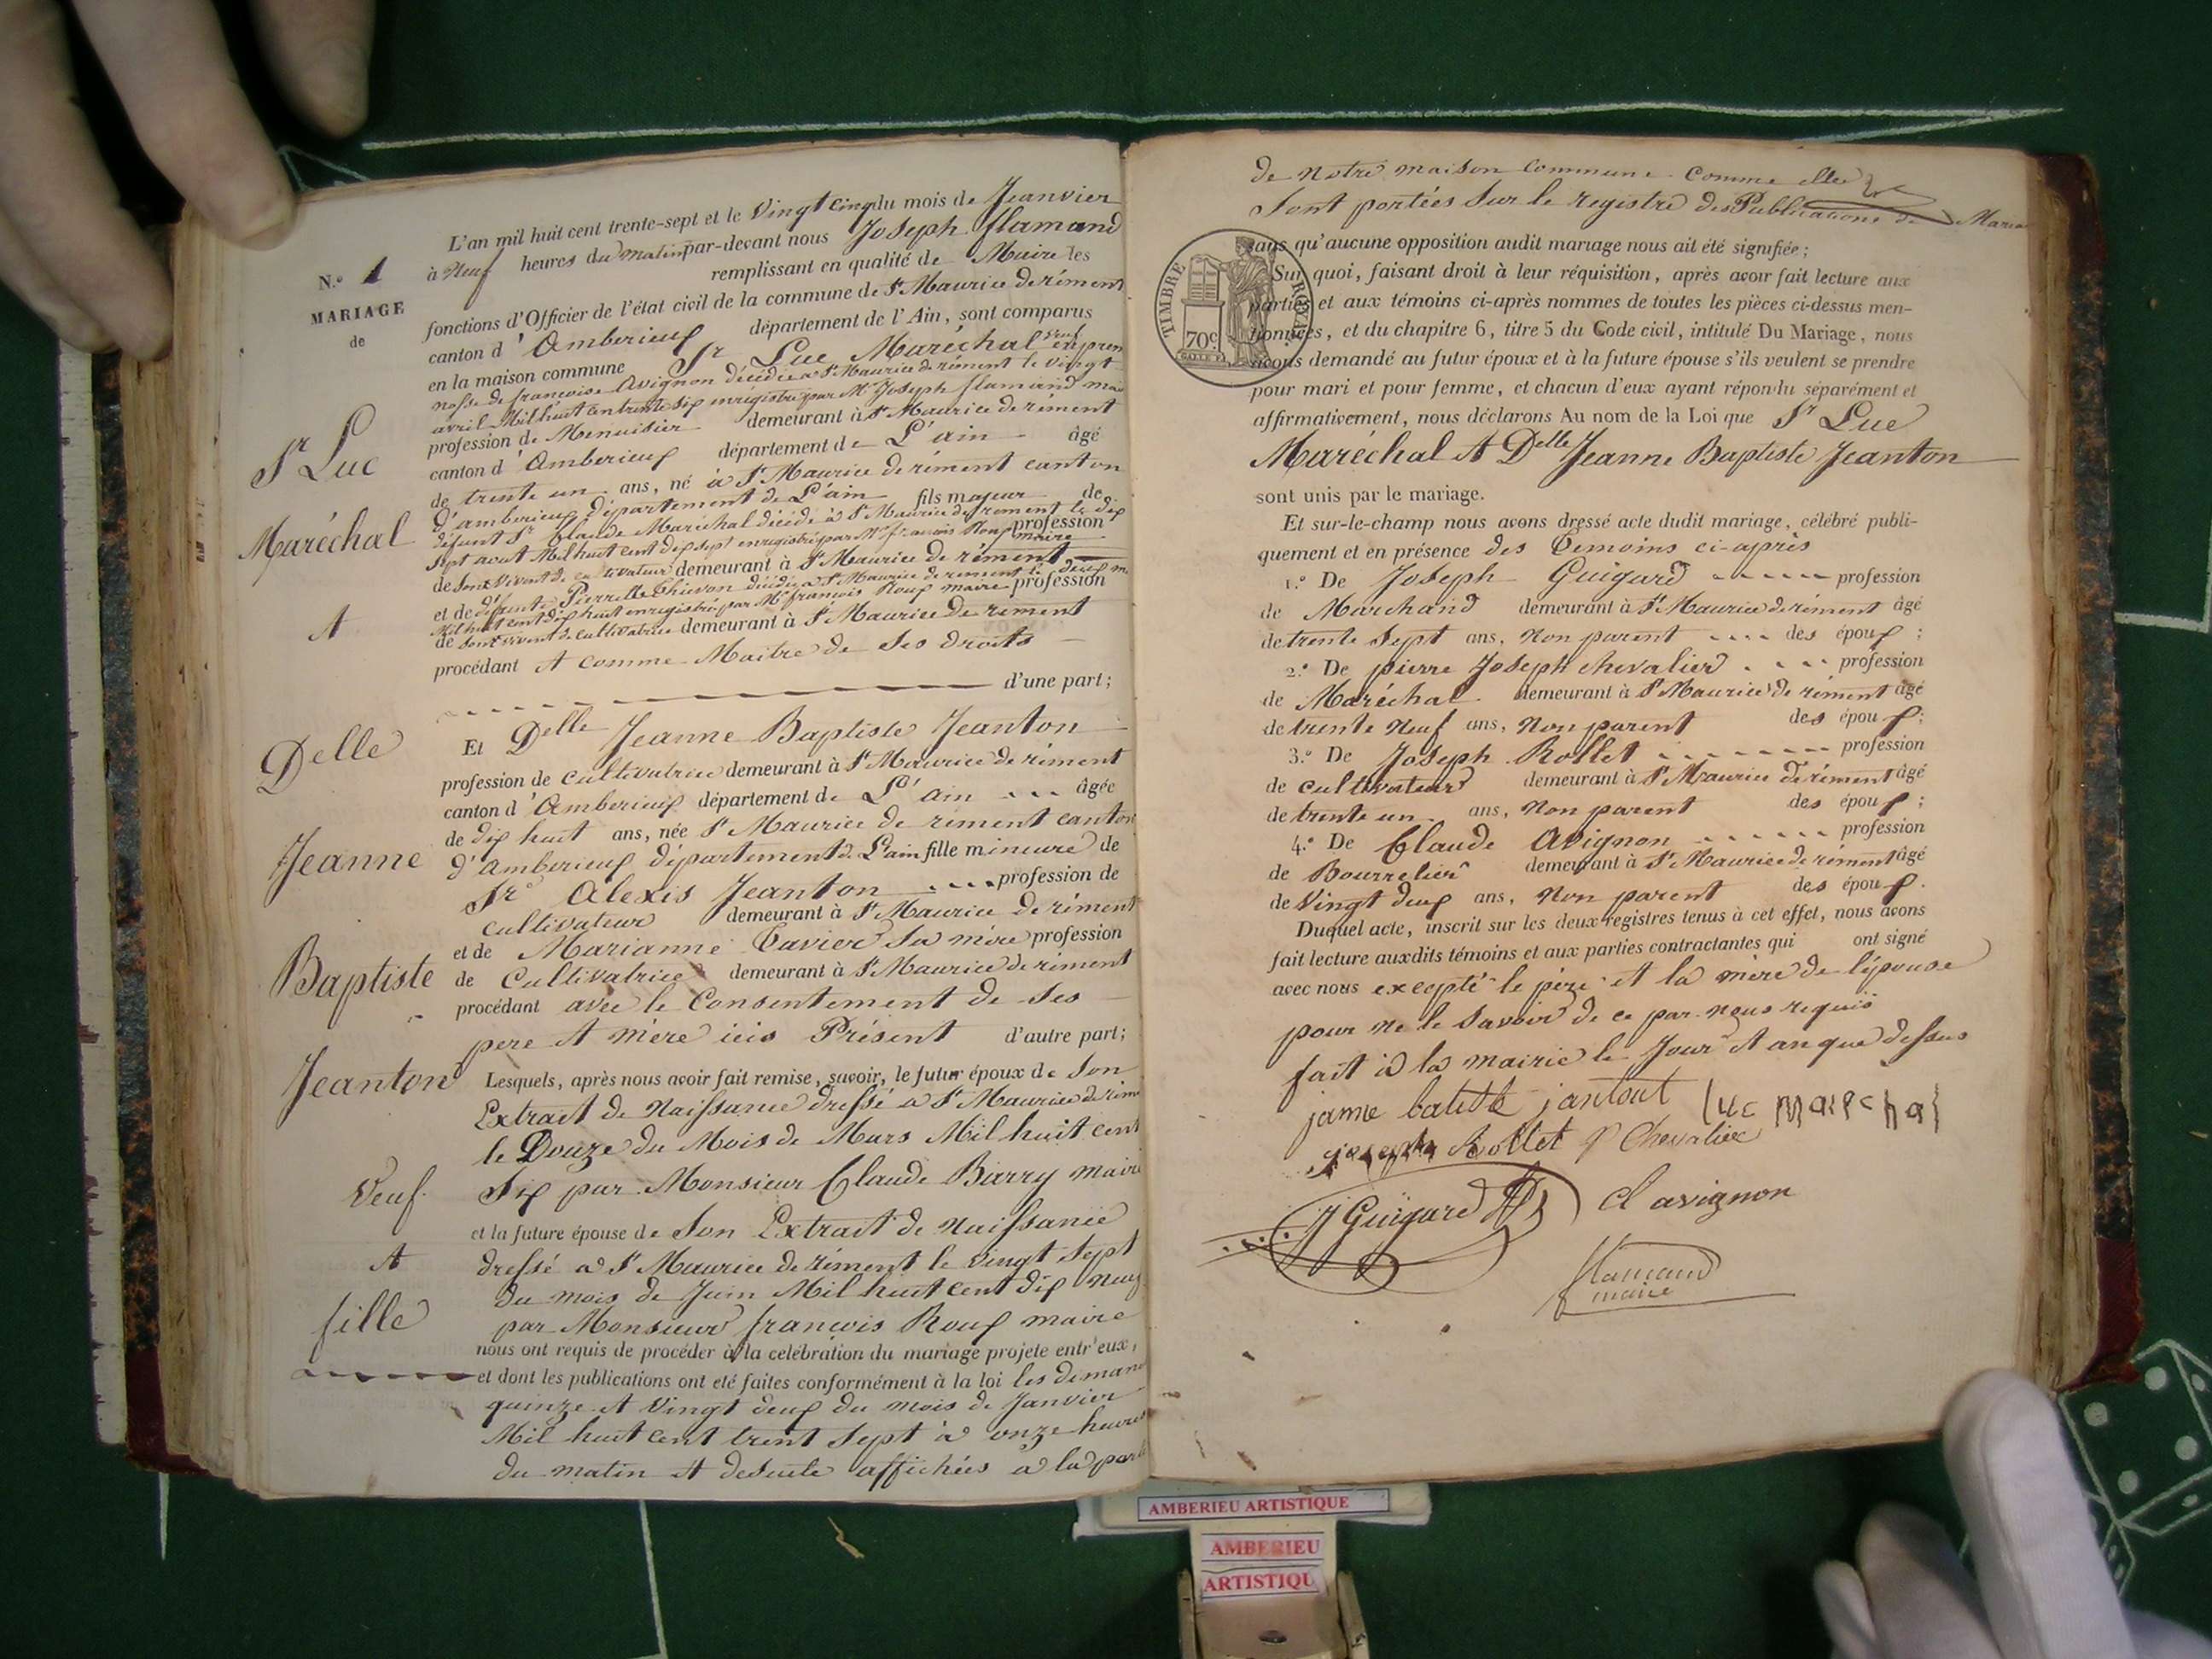 N.° 1
MARIAGE
de
Sr Luc
Maréchal
et
Delle
Jeanne
Baptiste
Jeanton
Veuf
et
fille
L'an mil huit cent trente-sept et le Vingt cinq du mois de Jeanvier
à Neuf heures du matin par-devant nous Joseph flamand
remplissant en qualité de Maire les
fonctions d'Officier de l'état civil de la commune de St Maurice de rément
canton d'Amberieux département de l'Ain, sont comparus
en la maison commune Sr Luc Maréchal veuf en prem
nosse de francoise Avignon décédée a St Maurice de rément le vingt
avril Mil huit cent trente six enregistré par Mr Joseph flamand
profession de Menuisier demeurant à St Maurice de rément
canton d'Amberieux département de L'ain âgé
de trente un ans, né à St Maurice de rément canton
d'amberieux département de L'ain fils majeur de
défunt Sr Claude Maréchal décédé à St Maurice de rément le dix
sept aout Mil huit cent dix sept enregistré par Mr francois Roux maire profession
de Son Vivent de cultivateur demeurant à St Maurice de rément
et de défunte Pierrette Thievon décédée a St Maurice de rément le
Mil huit cent dix huit enregistré par Mr francois Roux maire profession
de Son vivent de cultivatrice demeurant à St Maurice de rément
procédant et comme Maitre de Ses droits
d'une part;
Et Delle Jeanne Baptiste Jeanton
profession de cultivatrice demeurant à St Maurice de rément
canton d'Amberieux département de L'ain âgée
de dix huit ans, née St Maurice de rément canton
d'Amberieux département de L'ain fille mineure de
Sr Alexis Jeanton profession de
cultivateur demeurant à St Maurice de rément
et de Marianne Tavier Sa mère profession
de Cultivatrice demeurant à St Maurice de rément
procédant avec le Consentement de Ses
pere et mère icis Présent d'autre part;
Lesquels, après nous avoir fait remise, savoir, le futur époux de Son
Extrait de Naissance dressé a St Maurice de rém
le Douze du Mois de Mars Mil huit cent
Six par Monsieur Claude Barry maire
et la future épouse de Son Extrait de Naissance
dressé a St Maurice de rément le vingt Sept
du mois de Juin Mil huit cent dix neuf
par Monsieur francois Roux maire
nous ont requis de procéder à la celébration du mariage projete entr'eux,
et dont les publications ont été faites conformément à la loi les diman
quinze et vingt deux du mois de Janvier
Mil huit cent trent Sept à onze heures
du matin et desuite affichées a la porte
de Notre maison Commune Comme elle
Sont portées Sur le registre des Publications de Maria
TIMBRE ROYAL
70c.
sans qu'aucune opposition audit mariage nous ait été signifiée;
Sur quoi, faisant droit à leur réquisition, après avoir fait lecture aux
parties et aux témoins ci-après nommes de toutes les pièces ci-dessus men-
tionnées, et du chapitre 6, titre 5 du Code civil, intitulé Du Mariage, nous
avons demandé au futur époux et à la future épouse s'ils veulent se prendre
pour mari et pour femme, et chacun d'eux ayant répondu séparément et
affirmativement, nous déclarons Au nom de la Loi que Sr Luc
Maréchal et Delle Jeanne Baptiste Jeanton
sont unis par le mariage.
Et sur-le-champ nous avons dressé acte dudit mariage, célébré publi-
quement et en présence des Temoins ci-après
1.° De Joseph Guigard profession
de Marchand demeurant à St Maurice de rément âgé
de trente Sept ans, Non parent des époux;
2.° De pierre Joseph chevalier profession
de Maréchal demeurant à St Maurice de rément âgé
de trente Neuf ans, Non parent des époux;
3.° De Joseph Rollet profession
de cultivateur demeurant à St Maurice de rément âgé
de trente un ans, Non parent des époux;
4.° De Claude Avignon profession
de Bourrelier demeurant à St Maurice de rément âgé
de Vingt deux ans, Non parent des époux.
Duquel acte, inscrit sur les deux registres tenus à cet effet, nous avons
fait lecture auxdits témoins et aux parties contractantes qui ont signé
avec nous excepté le père et la mère de l'épouse
pour ne le Savoir de ce par nous requis
fait à la mairie le Jour et an que dessus
janne batiste jantont luc marechal
joseph Rollet P Chevalier
J Guigard cl avignon
flamand
maire
AMBERIEU ARTISTIQUE
AMBERIEU
ARTISTIQU